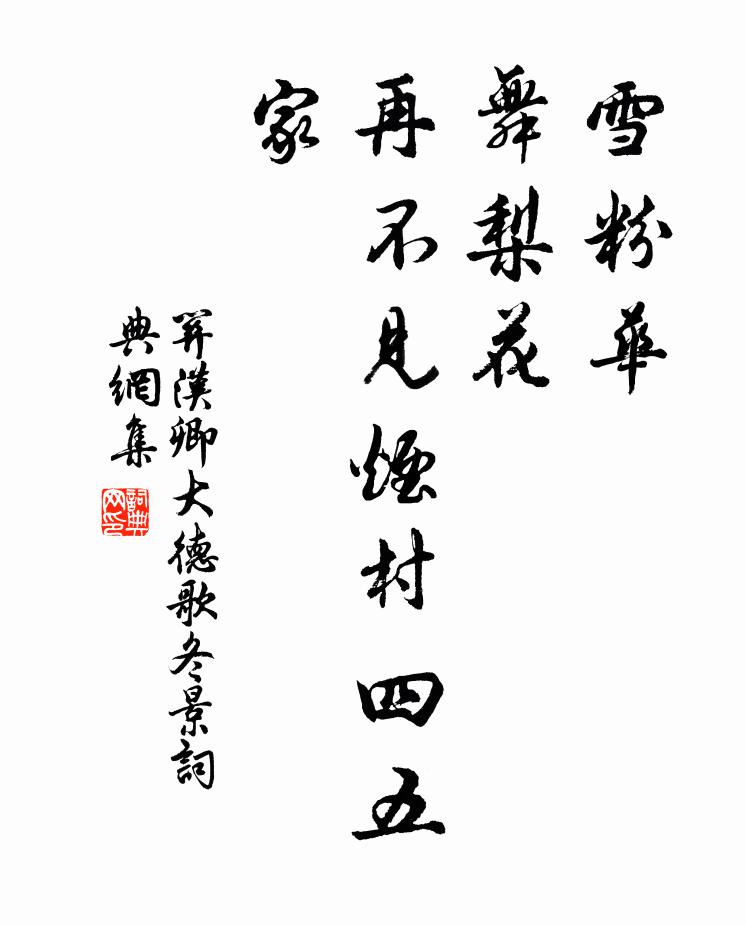 雪粉華
舞梨花
再不見煙村四五
家
関漢卿大德歌冬景詞
典網集
詞典
网印